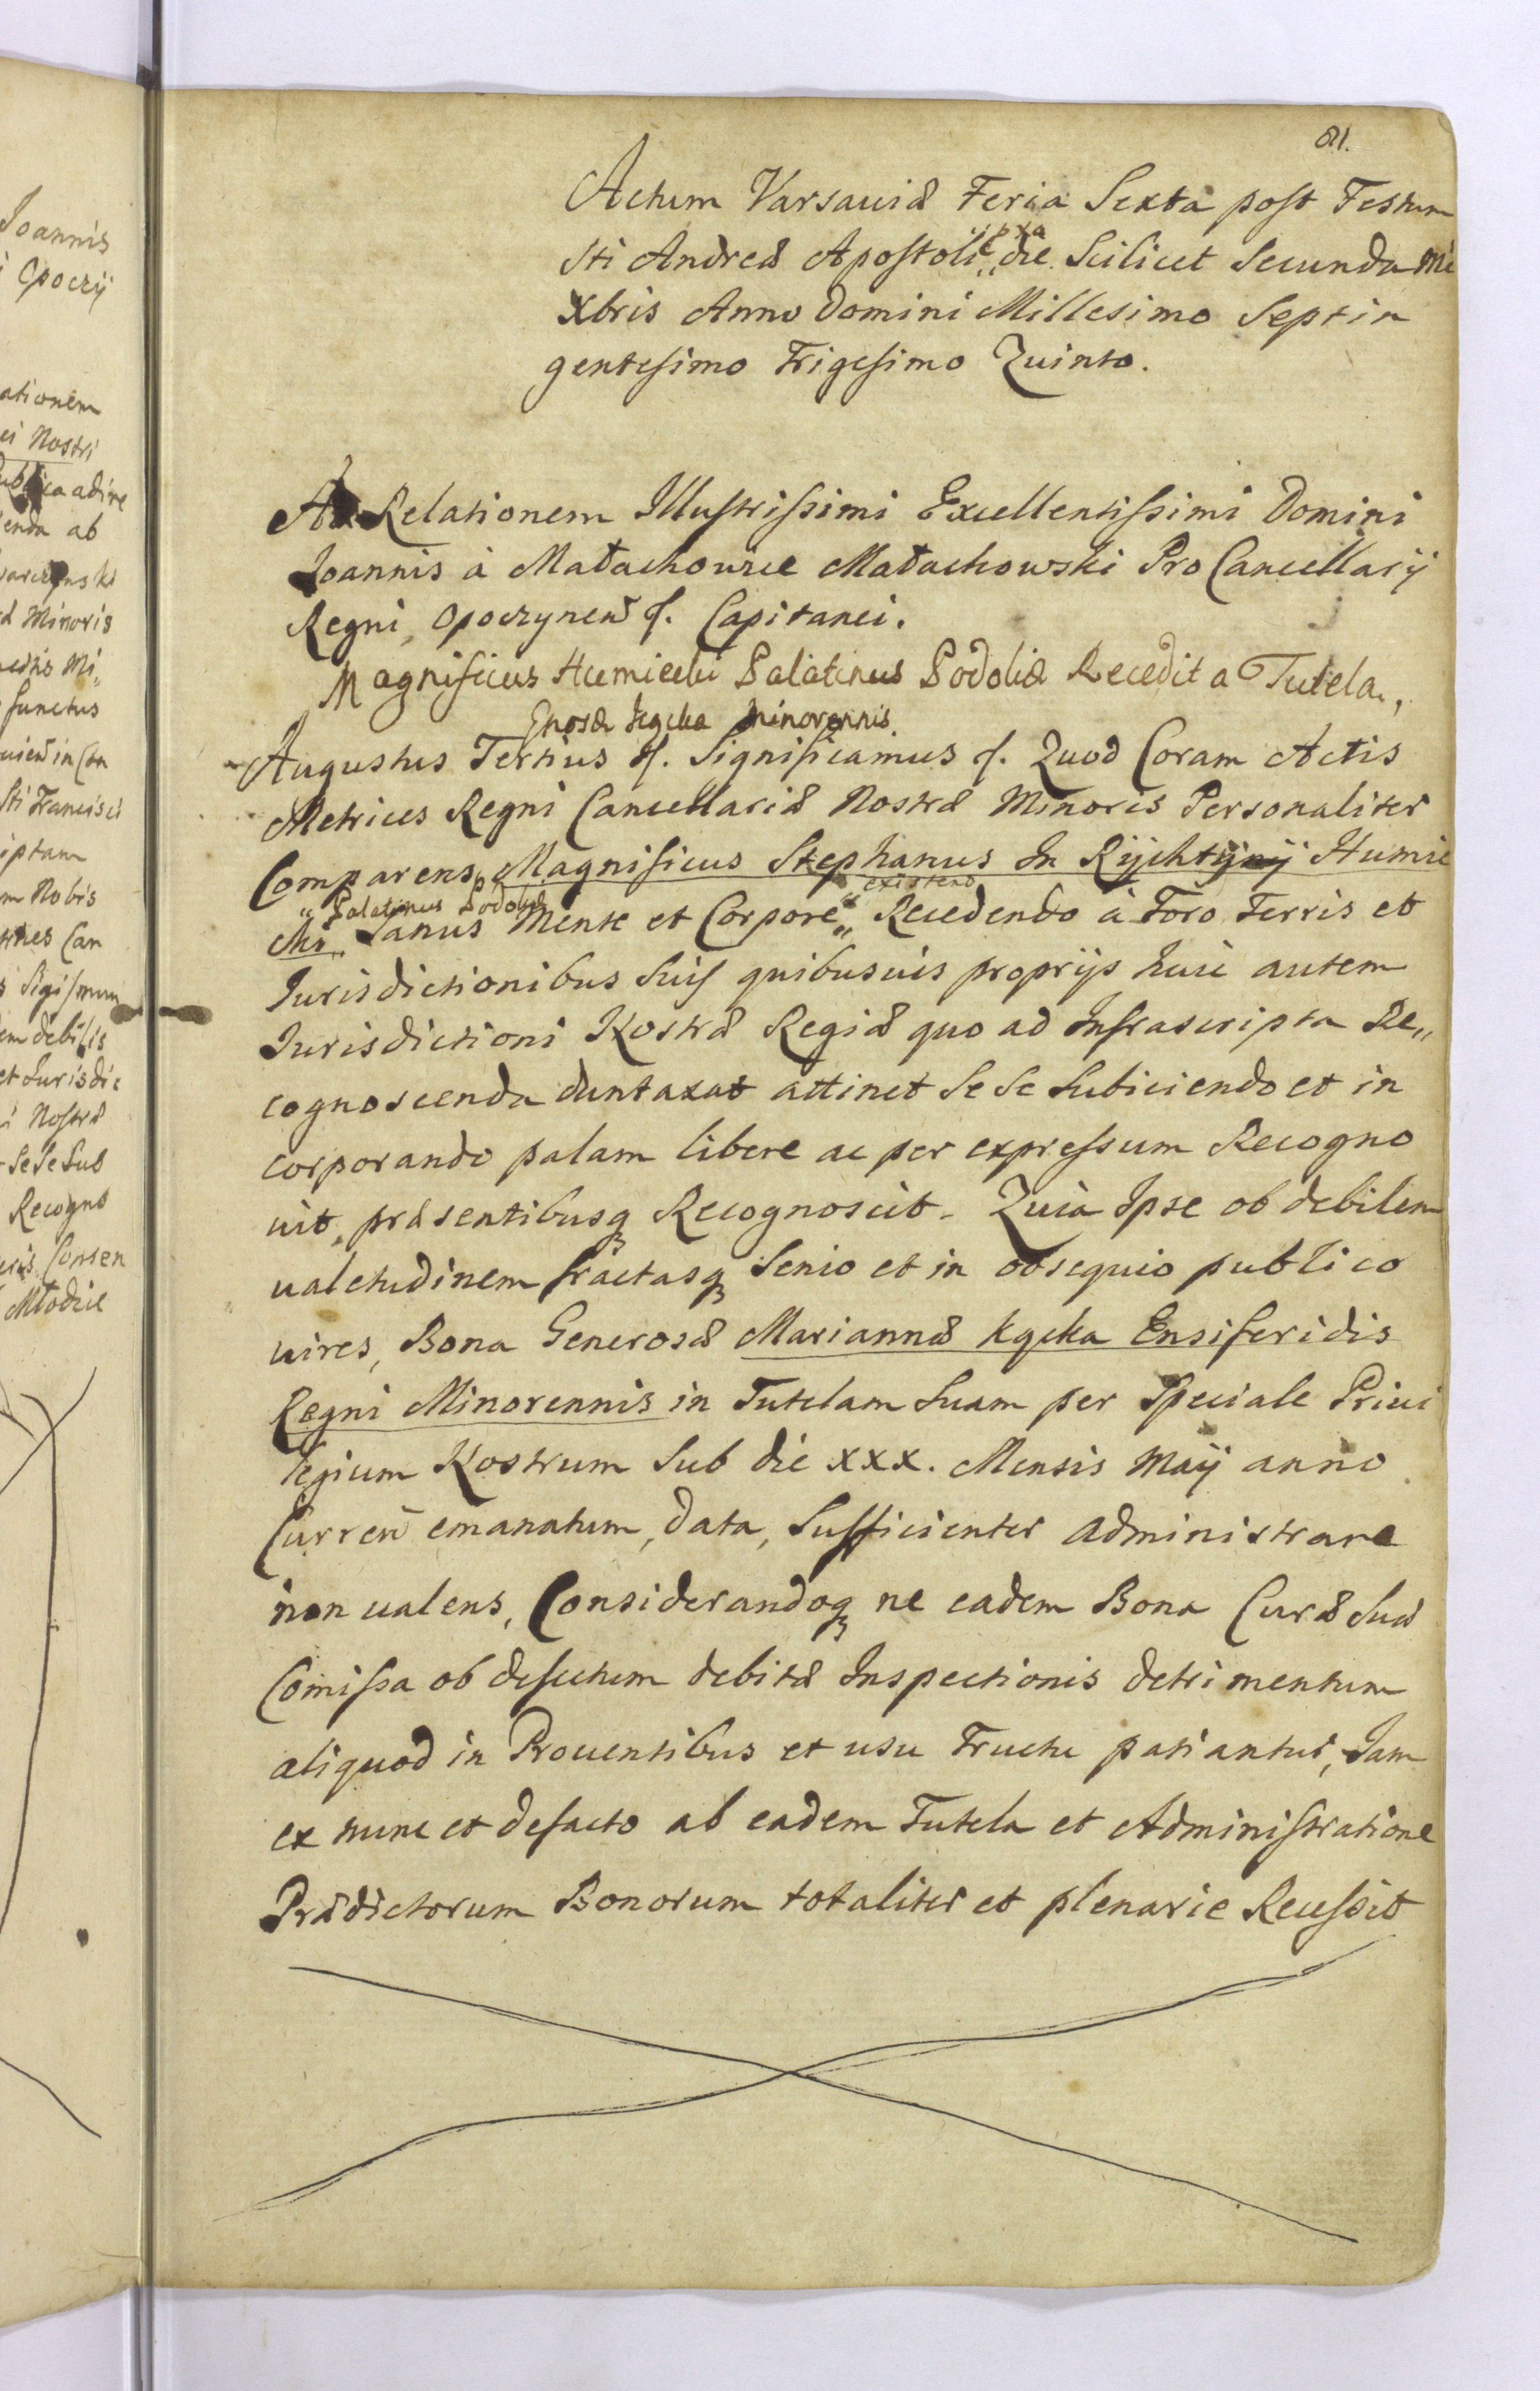 81.
Actum Varsaviæ Feria Sexta post Festum
Sti Andreæ Apostoli „ pxa „ die Scilicet Secunda Mś
Xbris Anno Domini Millesimo Septin
gentesimo Trigesimo Quinto.
Ad Relationem Illustrissimi Excellentissimi Domini
Joannis à Małachowice Małachowski ProCancellarij
Regni, Opoczynen &. Capitanei.
Magnificus Humiecki Palatinus Podoliæ Recedit a Tutela,
Gnosæ Kącka Minorennis.
Augustus Tertius &. Significamus &. Quod Coram Actis
Metrices Regni Cancellariæ Nostræ Minoris Personaliter
Comparens, Magnificus Stephanus In Rychty Humie
cki „ Palatinus Podoliæ „ Sanus Mente et Corpore „ existens „ Recedendo à Foro Terris et
Jurisdictionibus Suis quibusvis proprijs huic autem
Jurisdictioni Nostræ Regiæ quo ad Infrascripta Re„
cognoscenda duntaxat attinet Se Se Subiiciendo et in
corporando palam libere ac per expressum Recogno
uit, præsentibusq Recognoscit. Quia Ipse ob debilem
ualetudinem fractasq Senio et in obsequio publico
uires, Bona Generosæ Mariannæ Kącka Ensiferidis
Regni Minorennis in Tutelam Suam per Speciale Priui
legium Nostrum Sub die xxx. Mensis Maij anno
Curren emanatum, data, Sufficienter administrare
non ualens, Considerandoq ne eadem Bona Curæ Suæ
Comissa ob defectum debitæ Inspectionis detrimentum
aliquod in Prouentibus et usu Fructu patiantur, Jam
ex nunc et defacto ab eadem Tutela et Administratione
Prædictorum Bonorum totaliter et plenarie Recessit
Joannis
Opoczÿ
ationem
ei Nostri
enda ab
Minoris
functus
Sti Francisci
iptam
m Nobis
Sigismun
em debilis
et Jurisdic
i Nostræ
Se Se Sub
Recogno
Consen
Młodzie